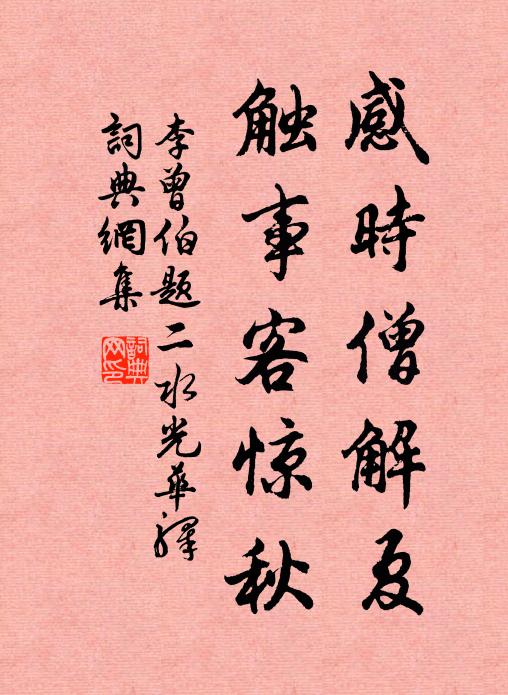 感時僧解夏
触事客惊秋
李曾伯題二水光華驛
詞典網集
詞典網印